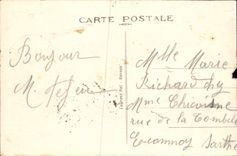 CARTE POSTALE
Bonjour
M. Lefèvre
Mlle Marie
Richard chez
Mme
rue de la
Ecommoy Sarthe